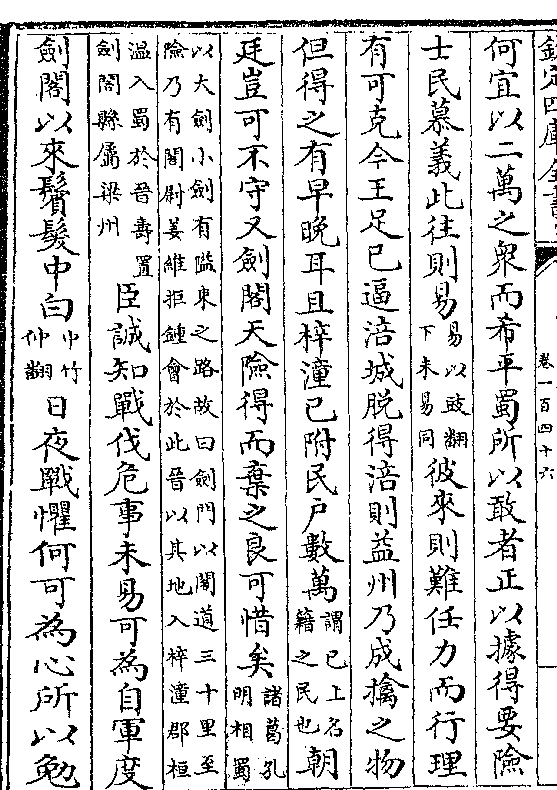 欽定四庫全書
卷一百四十六
何宜以二萬之衆而希平蜀所以敢者正以據得要險
士民慕義此往則易易以豉翻下未易同彼來則難任力而行理
有可克今王足已逼涪城脱得涪則益州乃成擒之物
但得之有早晚耳且梓潼已附民户數萬謂已上名籍之民也朝
廷豈可不守又劍閣天險得而棄之良可惜矣諸葛孔明相蜀
以大劍小劍有隘束之路故曰劍門以閣道三十里至
險乃有閣尉姜維拒鍾會於此晉以其地入梓潼郡桓
温入蜀於晉壽置劍閣縣屬梁州臣誠知戰伐危事未易可為自軍度
劍閣以來鬢髮中白中竹仲翻日夜戰懼何可為心所以勉